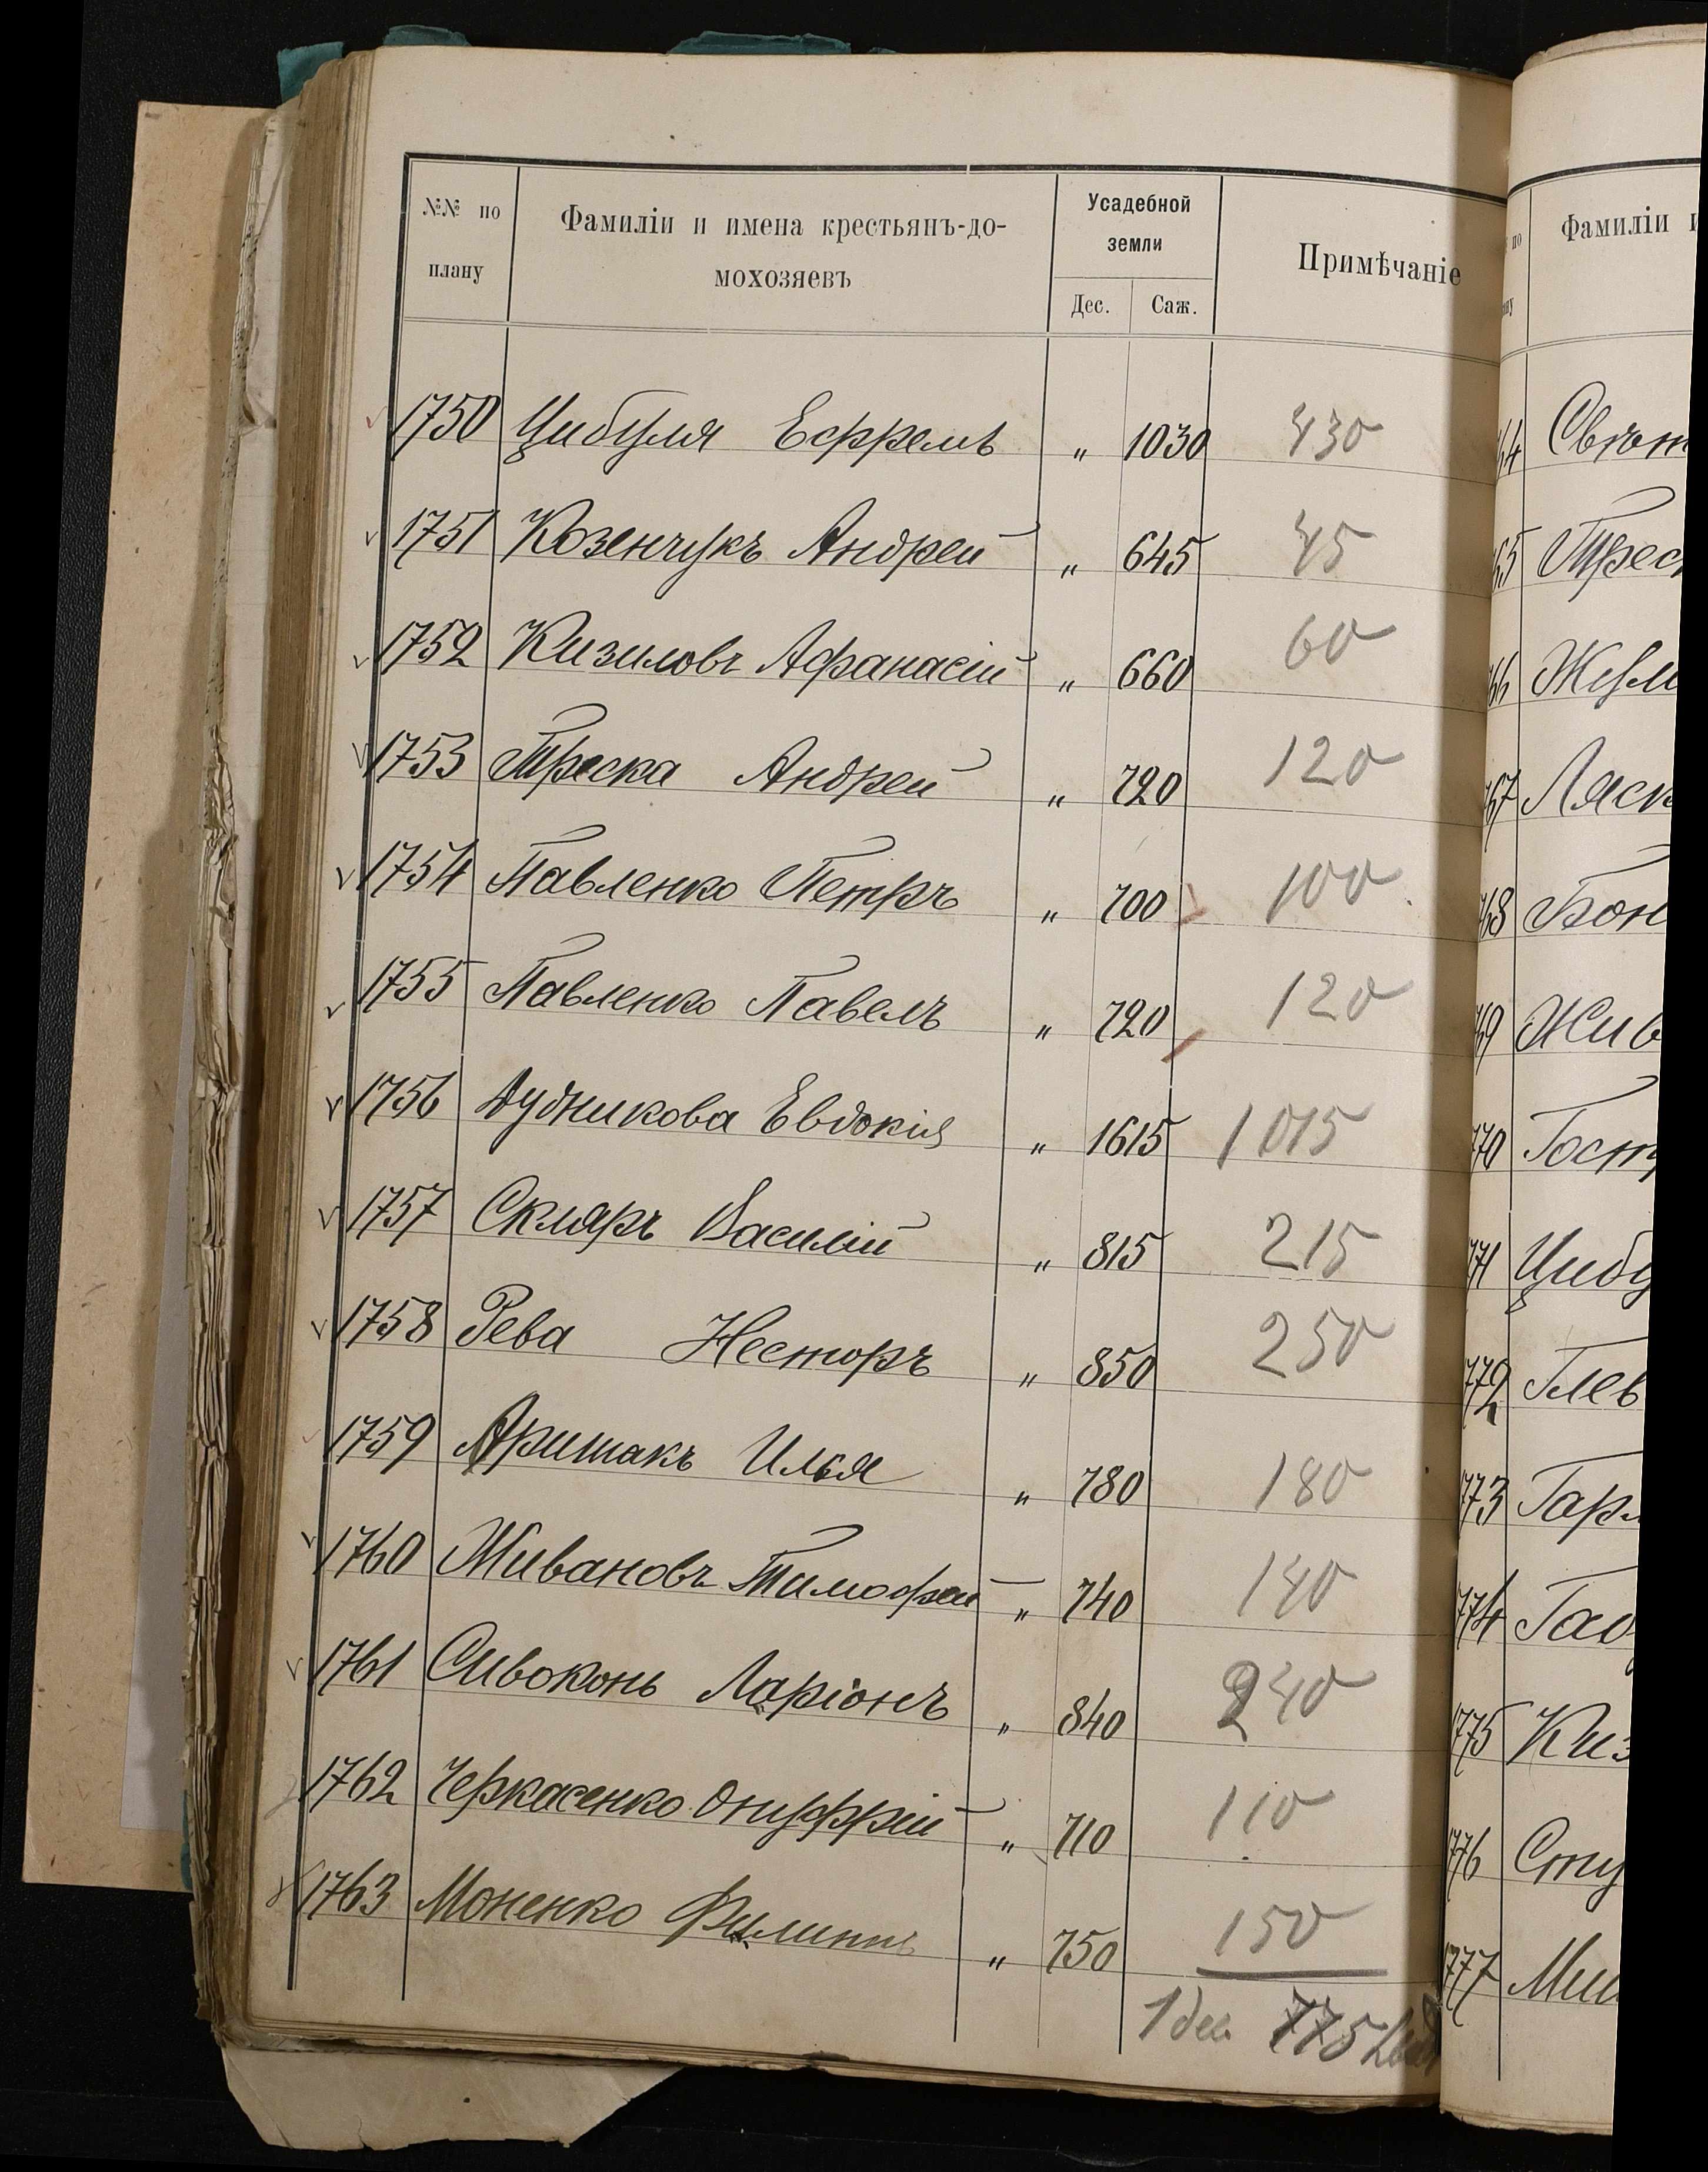 №№ по плану
Фамиліи и имена крестьянъ-до-
мохозяевъ
Усадебной
земли
Дес. Саж.
Примѣчаніе
1750 Цибуля Ефремъ " 1030 430
1751 Козенчукъ Андрей " 645 45
1752 Кизиловъ Афанасій " 660 60
1753 Треска Андрей " 720 120
1754 Павленко Петръ " 700 100
1755 Павленко Павелъ " 720 120
1756 Дудникова Евдокія " 1615 1015
1757 Скляръ Василій " 815 215
1758 Рева Несторъ " 850 250
1759 Аришакъ Илья " 780 180
1760 Живановъ Тимофей " 740 140
1761 Сивоконь Ларіонъ " 840 240
1762 Черкасенко Онуффрій " 710 110
1763 Моненко Филиппъ " 750 150
1 дес 775
по
Фамиліи и
64 Свѣт
65 Трес
66 Жур
767 Ляск
768 Бон
769 Жив
770 Гост
771 Цибу
772 Глев
773 Гар
774 Га
775 Киз
776 Сту
777 Ми